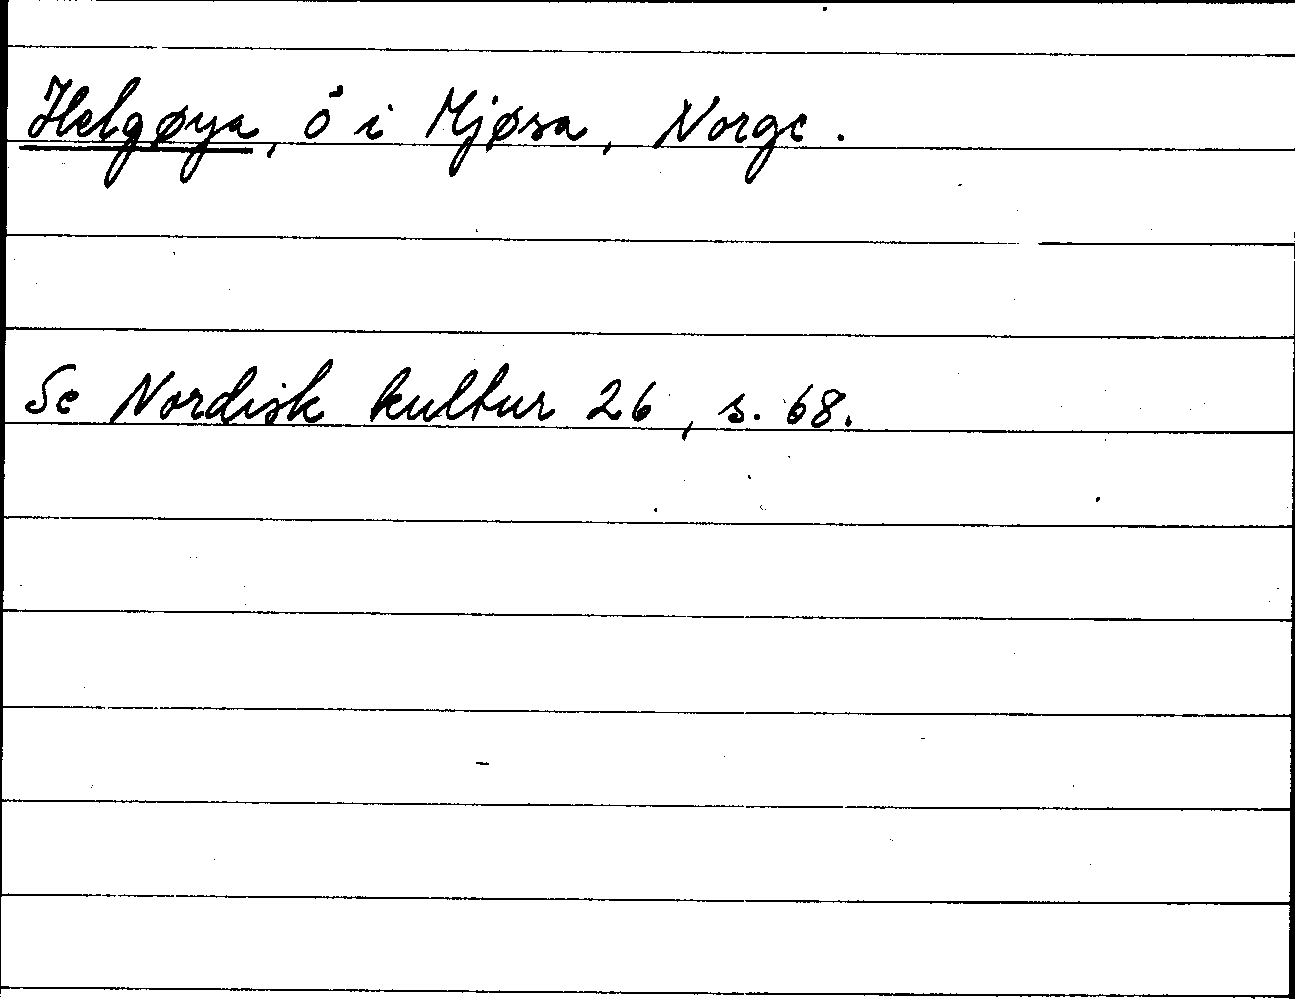 Helgøya, ö i Mjøsa, Norge.
Se Nordisk kultur 26, s. 68.